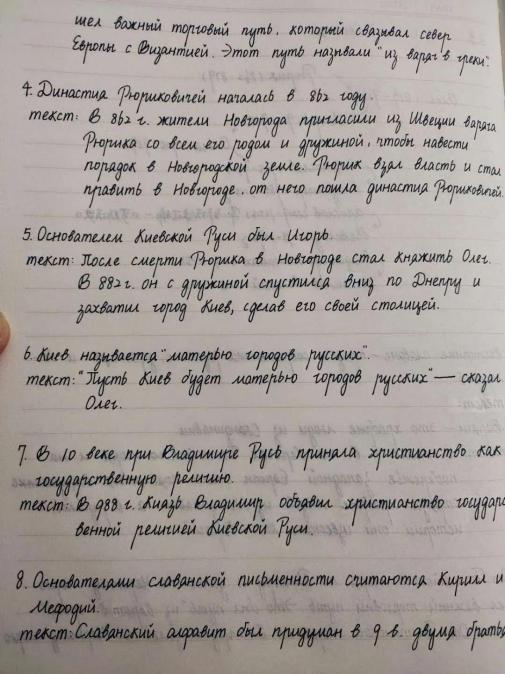 шел важный торговый путь, который связывал север
Европы с Византией. Этот путь называли "из варяг в греки".
4. Династия Рюриковичей началась в 862 году.
текст: В 862 г. жители Новгорода пригласили из Швеции варяга
Рюрика со всем его родом и дружиной, чтобы навести
порядок в Новгородской земле. Рюрик взял власть и стал
править в Новгороде, от него пошла династия Рюриковичей.
5. Основателем Киевской Руси был Игорь.
текст: После смерти Рюрика в Новгороде стал княжить Олег.
В 882 г. он с дружиной спустился вниз по Днепру и
захватил город Киев, сделав его своей столицей.
6. Киев называется "матерью городов русских".
текст: "Пусть Киев будет матерью городов русских" — сказал
Олег.
7. В 10 веке при Владимире Русь приняла христианство как
государственную религию.
текст: В 988 г. Князь Владимир объявил христианство государс
венной религией Киевской Руси.
8. Основателями славянской письменности считаются Кирилл и
Мефодий.
текст: Славянский алфавит был придуман в 9 в. двумя братья